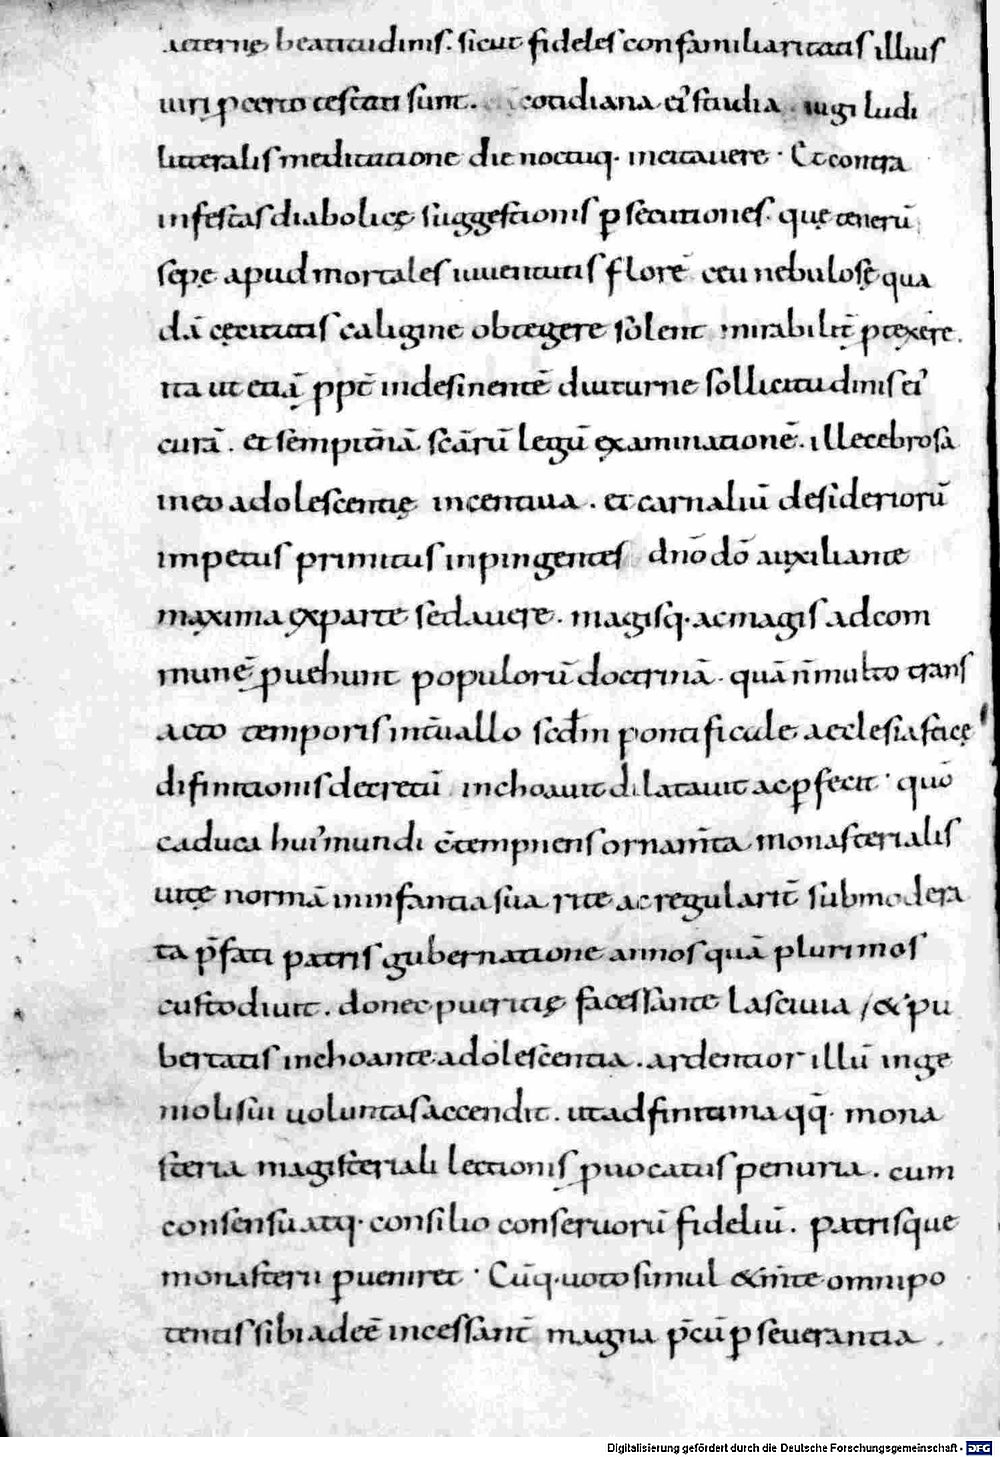 aeternę beatitudinis. sicut fideles confamiliaritatis illius
uiri ꝓ certo testati sunt. cotidiana ei' studia iugi ludi
litteralis meditatione die noctuq· incitauere · Et contra
infestas diabolicę suggestionis ꝑsecutiones· quę tenerū
sępe apud mortales iuuentutis florē ceu nebulosę qua
dā cęcitatis caligine obtegere solent mirabilit̄ ptexere.
ita ut etiā ꝓpt̄ indesinentē diuturne sollicitudinis ei'
curā. et sempit̄nā scārū legū examinationē. illecebrosa
in eo adolescentię incentiua. et carnaliū desideriorū
impetus primitus inpingentes dnō dō auxiliante
maxima ex parte sedauere. magisq· ac magis ad com
munē ꝓuehunt populorū doctrinā. quā n̄ multo trans
acto temporis int̄uallo scdm pontificale aecclesiasticę
difinitionis decretū inchoauit dilatauit ac ꝑfecit · quō
caduca hui' mundi c̄tempnens ornam̄ta monasterialis
uitę normā in infantia sua rite ac regularit̄ sub modera
ta p̄fati patris gubernatione annos quā plurimos
custodiuit. donec pueritię facessante lasciuia / & pu
bertatis inchoante adolescentia. ardentior illū inge
moli sui uoluntas accendit. ut ad finitima qq̄· mona
steria magisteriali lectionis ꝓuocatus penuria. cum
consensu atq· consilio conseruorū fideliū. patrisque
monasterii ꝑueniret · Cūq· uoto simul & m̄te omnipo
tentis sibi adeē incessant̄ magna p̄cū ꝑseuerantia .
Digitalisierung gefördert durch die Deutsche Forschungsgemeinschaft - DFG